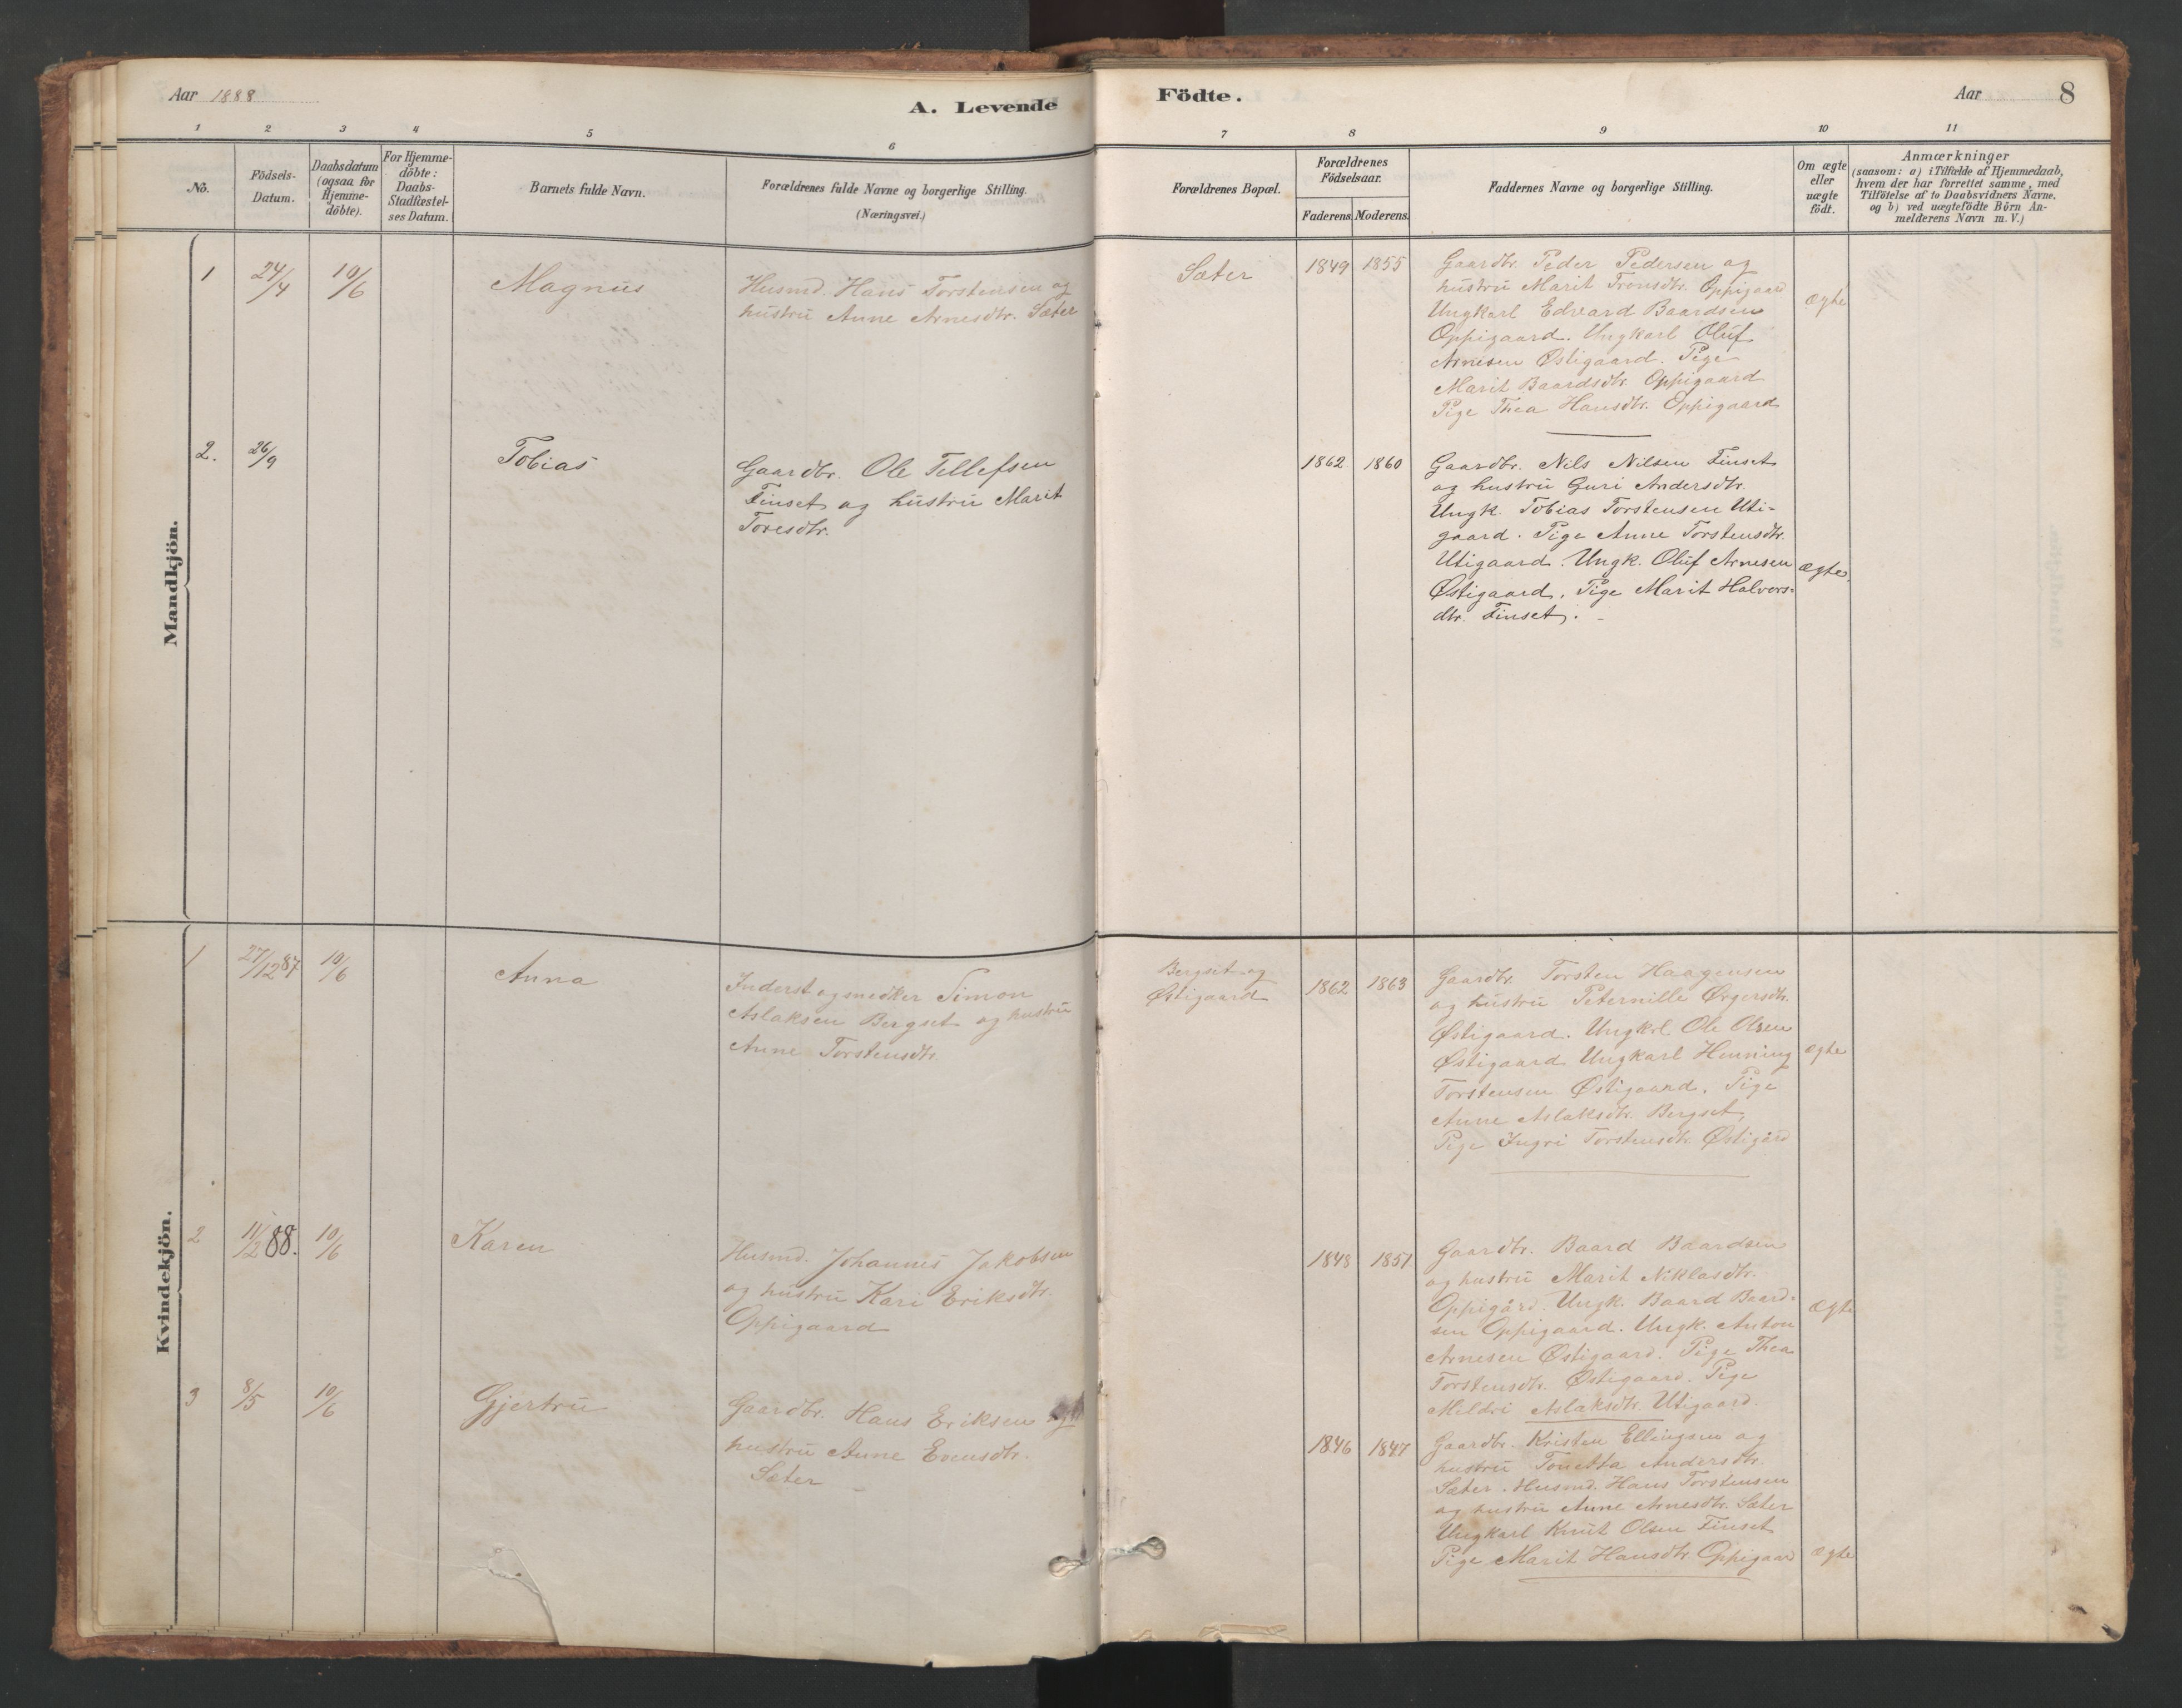 Aar 1888
A. Levende Födte.
Aar
8
1 2 3 4 5 6 7 8 9 10 11
No.
Födsels-
Datum.
Daabsdatum
(ogsaa for
Hjemme-
döbte).
For Hjemme-
döbte:
Daabs-
Stadfæstel-
ses Datum.
Barnets fulde Navn.
Forældrenes fulde Navne og borgerlige Stilling.
(Næringsvei.)
Forældrenes Bopæl.
Forældrenes
Födselsaar.
Faderens. Moderens.
Faddernes Navne og borgerlige Stilling.
Om ægte
eller
uægte
födt.
Anmærkninger
(saasom: a) i Tilfælde af Hjemmedaab,
hvem der har forrettet samme, med
Tilföielse af to Daabsvidners Navne,
og b) ved uægtefödte Börn An-
melderens Navn m. V.)
Mandkjön.
1
24/4
10/6
Magnus
Husmd. Hans Torstensen og
hustru Anne Arnesdtr. Sæter
Sæter
1849 1855
Gaardbr. Peder Pedersen og
hustru Marit Tronsdtr. Oppigaard
Ungkarl Edvard Baardsen
Oppigaard. Ungkarl Oluf
Arnesen Østigaard. Pige
Marit Baardsdtr. Oppigaard
Pige Thea Hansdtr. Oppigaard
ægte
2.
26/9
Tobias
Gaardbr. Ole Tellefsen
Finset og hustru Marit
Toresdtr.
1862 1860
Gaardbr. Nils Nilsen Finset
og hustru Guri Andersdtr.
Ungk. Tobias Torstensen Uti-
gaard. Pige Anne Torstensdtr.
Utigaard. Ungk. Oluf Arnesen
Østigaard. Pige Marit Halvors-
dtr. Finset.
ægte.
Kvindekjön.
1
27/12 87
10/6
Anna
Inderst og snedker Simon
Aslaksen Bergset og hustru
Anne Torstensdtr.
Bergset og
Østigaard
1862 1863
Gaardbr. Torsten Haagensen
og hustru Peternille
Østigaard. Ungkrl. Ole Olsen
Østigaard Ungkarl Henning
Torstensen Østigaard. Pige
Anne Aslaksdtr. Bergset.
Pige Ingri Torstensdtr. Østigård
ægte
2
11/2 88.
10/6
Karen
Husmd. Johannes Jakobsen
og hustru Kari Eriksdtr.
Oppigaard
1848 1851
Gaardbr. Baard Baardsen
og hustru Marit Niklasdtr.
Oppigård. Ungk. Baard Baard-
sen Oppigaard. Ungk. Anton
Arnesen Østigaard. Pige Thea
Torstensdtr. Østigaard. Pige
Mildri Aslaksdtr. Utigaard.
ægte
3
8/5
10/6
Gjertru
Gaardbr. Hans Eriksen og
hustru Anne Evensdtr.
Sæter
1846 1847
Gaardbr. Kristen Ellingsen og
hustru Tonetta Andersdtr.
Sæter. Husmd. Hans Torstensen
og hustru Anne Arnesdtr. Sæter
Ungkarl Knut Olsen Finset
Pige Marit Hansdtr. Oppigaard
ægte